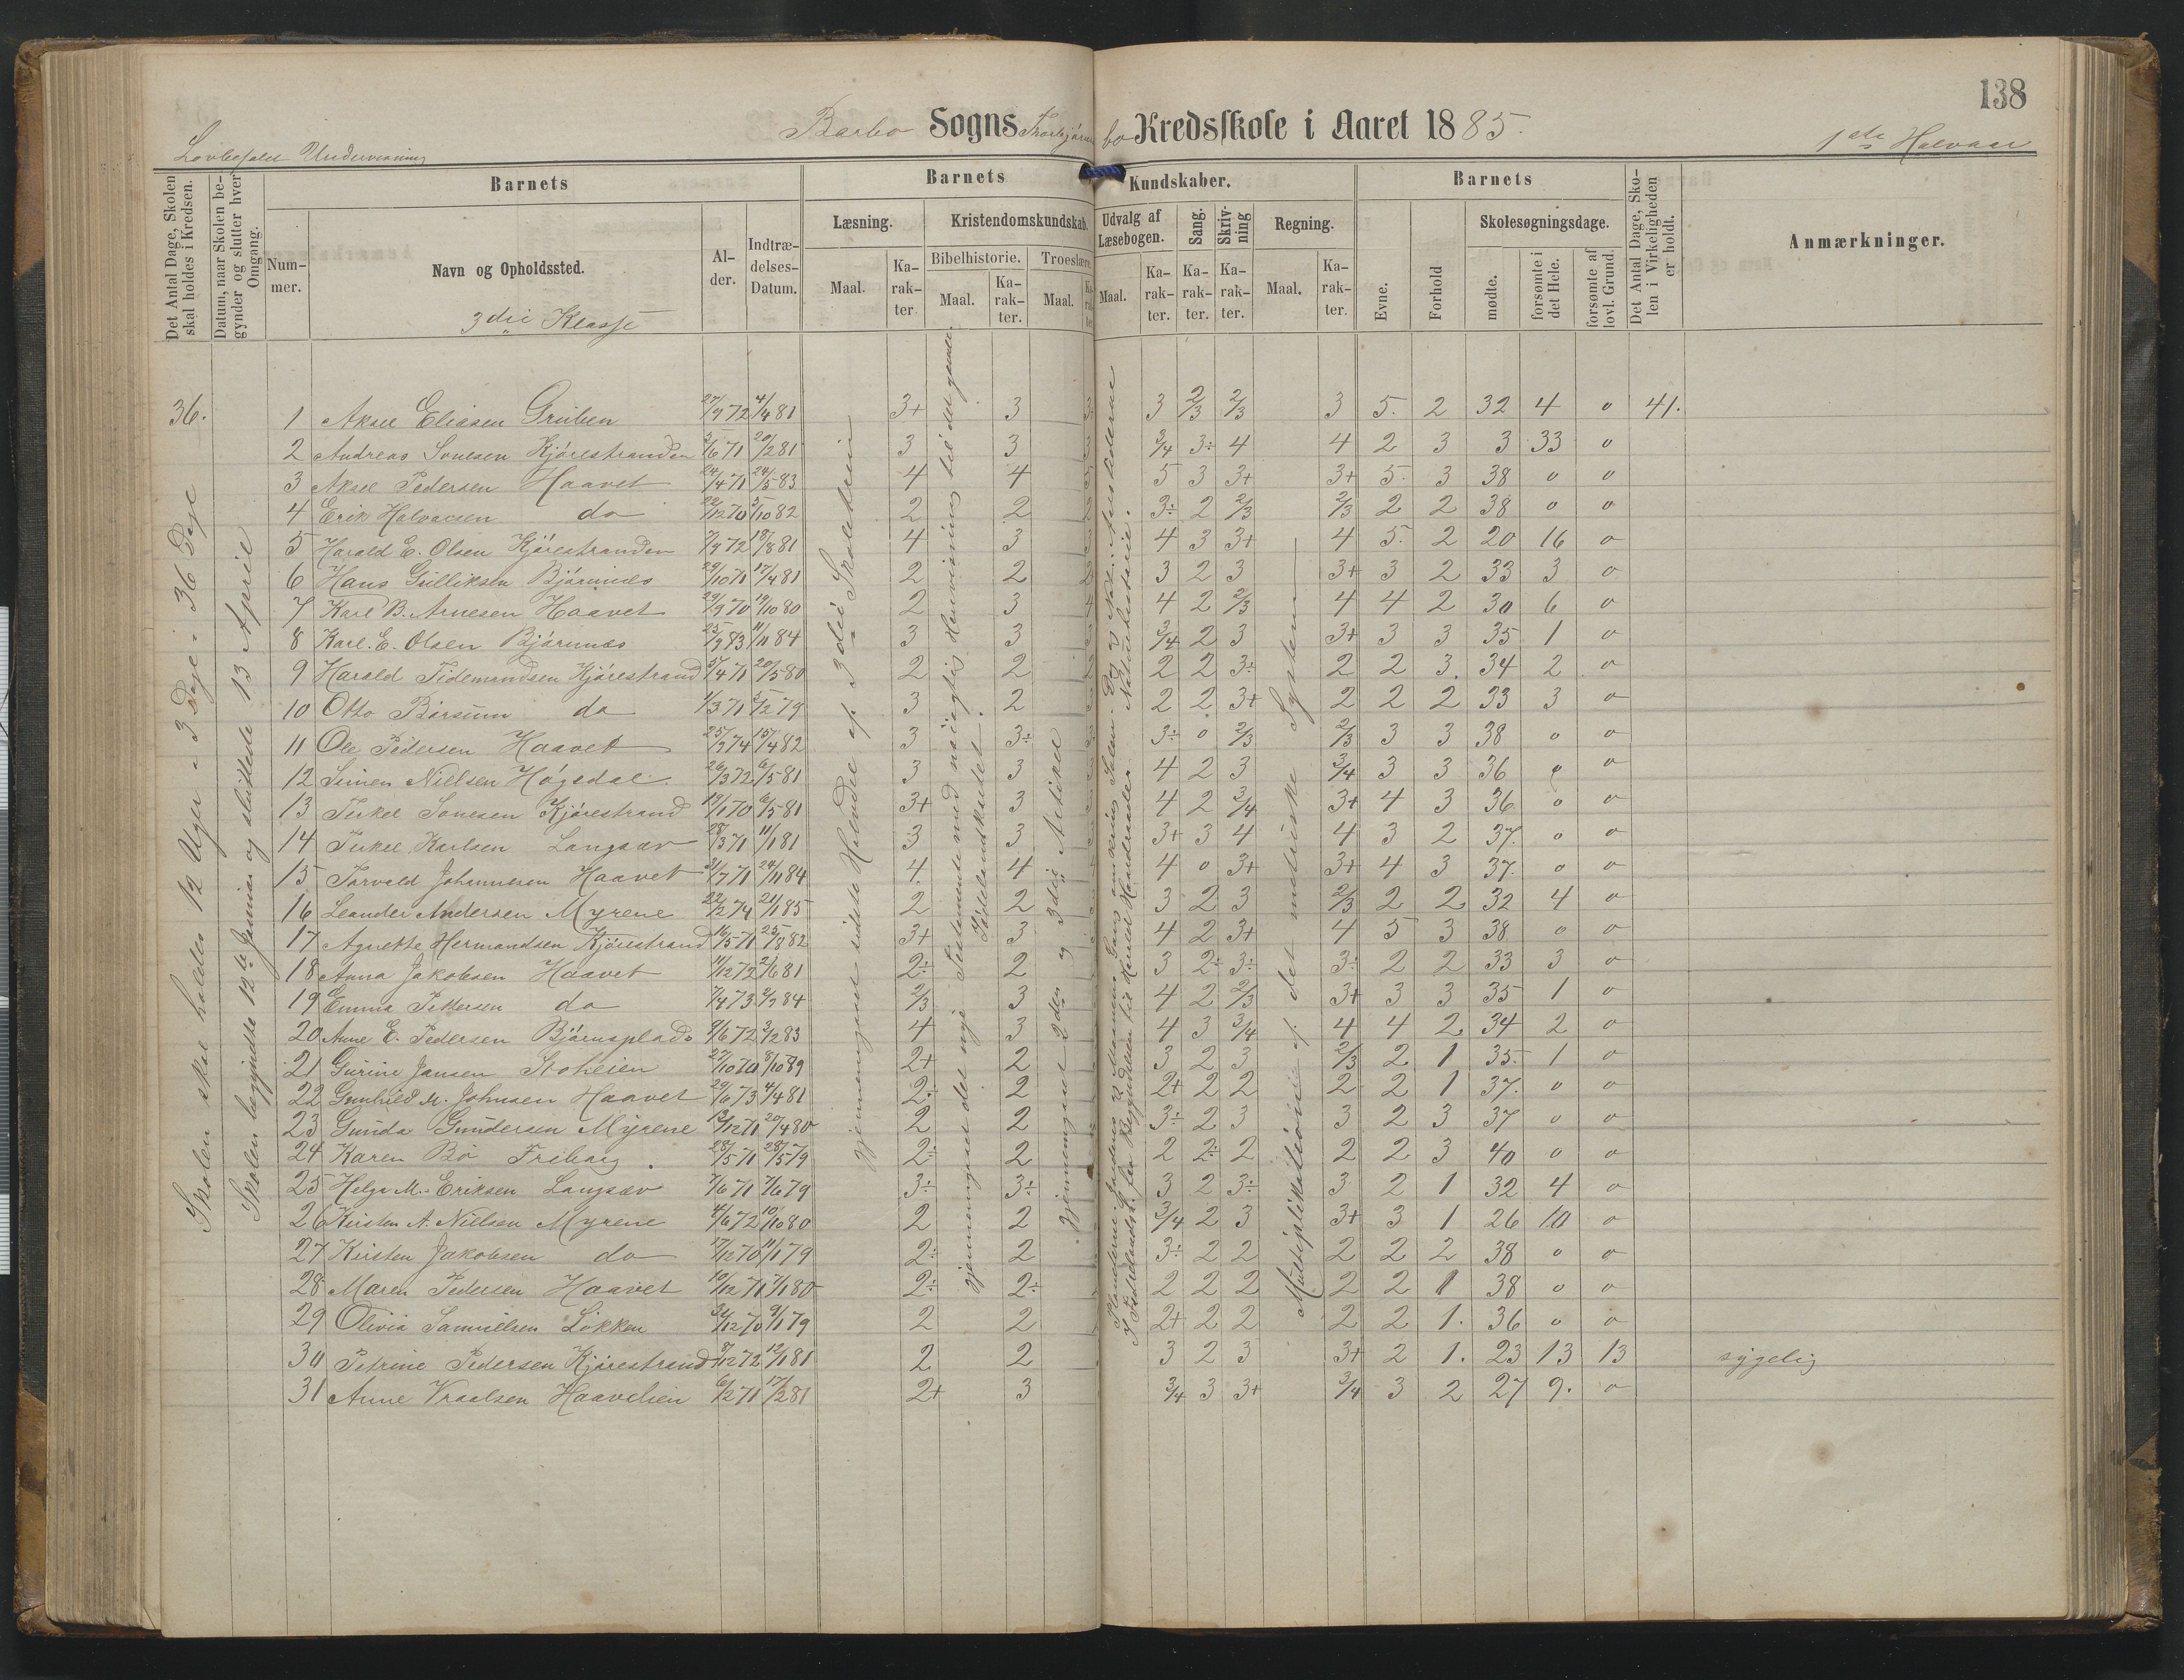 138
Barbo Sogns bo Kredsskole i Aaret 1885.
Lovbefalet Undervisning
1ste Halvaar
Det Antal Dage, Skolen skal holdes i Kredsen.
Datum, naar Skolen begynder og slutter hver Omgang.
Barnets
Barnets Kundskaber.
Barnets
Det Antal Dage, Skolen i Virkeligheden er holdt.
Anmærkninger.
Nummer.
Navn og Opholdssted.
Alder.
Indtrædelses-Datum.
Læsning.
Kristendomskundskab.
Udvalg af Læsebogen.
Sang.
Skrivning
Regning.
Evne.
Forhold
Skolesøgningsdage.
Bibelhistorie.
Troeslære.
Maal.
Karakter.
Maal.
Karakter.
Maal.
Karakter
Maal.
Karakter.
Karakter.
Karakter.
Maal.
Karakter.
mødte.
forsømte i det Hele.
forsømte af lovl. Grund.
3die Klasse
Skolen skal holdes 12 Uger a 3 Dage = 36 Dage
Skolen begyndte 12te Januar og sluttede 13 April
Gjennemgaaet sidste Halvdel af 3die Skoletrin
gjennemgaaet det nye Testamente med nøiagtig Henvisning til det gamle.
gjennemgaaet 2den og 3die Artikel
Multiplikation i det metriske System
36. 1 Aksel Eliasen Gruben 27/9 72 4/4 81 3+ 3 3 2/3 2/3 3 5. 2 32 4 0 41.
2 Andreas Jonesen Kjørestranden 2/6 71 20/2 81 3 3 3/4 3÷ 4 4 2 3 3 33 0
3 Aksel Pedersen Haavet 24/4 71 24/5 83 4 4 5 3 3+ 3+ 5. 3 38 0 0
4 Erik Halvorsen do 22/12 70 5/10 82 2 2 3÷ 2 2/3 2/3 2 2 38 0 0
5 Harald E. Olsen Kjørestranden 7/9 72 18/8 81 4 3 4 3 3+ 4 5. 2 20 16 0
6 Hans Gulliksen Bjørnnes 29/10 71 17/4 81 2 2 3 2 3 3+ 3 2 33 3 0
7 Karl B. Arnesen Haavet 29/9 70 19/10 80 2 3 4 2 2/3 4 4 2 30 6 0
8 Karl. E. Olsen Bjørnnes 25/9 83 11/11 84 3 3 3/4 2 3 3+ 3 3 35 1 0
9 Harald Tidemandsen Kjørestrand 5/4 71 20/5 80 2 2 2 2 3÷ 2 2 3. 34 2 0
10 Otto Børsum do 1/3 71 5/2 79 3 2 2 2 3+ 2 2 2 33 3 0
11 Ole Pedersen Haavet 25/9 74 15/4 82 3 3÷ 3÷ 0 2/3 2/3 3 3 38 0 0
12 Simen Nielsen Høgedal 26/3 72 6/5 81 3 3 4 2 3 3/4 3 3 36 0 0
13 Terkel Jonesen Kjørestrand 19/1 70 6/5 81 3+ 3 4 2 3/4 3+ 4 3 36 0 0
14 Terkel Karlsen Langsæv 28/3 71 11/1 81 3 3 3+ 3 4 4 3 2 37. 0 0
15 Torvald Johannesen Haavet 31/7 71 24/11 84 4. 4 4 0 3+ 3+ 4 3 37. 0 0
16 Leander Andersen Myrene 22/2 74 21/1 85 2 2 3 2 3 2/3 2 2 32 4 0
17 Agnethe Hermandsen Kjørestrand 16/5 71 25/8 82 3+ 3 4 2 3+ 4 5 3 38 0 0
18 Anna Jakobsen Haavet 11/12 72 2/6 81 2÷ 2 3 2÷ 3÷ 3÷ 2 2 33 3 0
19 Emma Pettersen do 7/4 73 2/7 84 2/3 3 4 2 2/3 3+ 3 3 35 1 0
20 Anne E. Pedersen Bjørnsplads 9/6 72 3/2 83 4 3 4 3 3/4 4 4 2 34 2 0
21 Gurine Jansen Stoheien 27/10 70 2 2+ 2 3 2 3 2/3 2 1 35. 1 0
22 Gunhild M. Johnsen Haavet 29/6 73 4/4 81 2÷ 2 2+ 2 2 2 2 1 37. 0 0
23 Gunda Gundersen Myrene 13/12 71 20/4 80 2 2 3÷ 2 3 3 2 3 37 0 0
24 Karen Bø Friborg 28/5 71 28/5 79 2÷ 2 2 2÷ 2 2 2 3 40 0 0
25 Helga M. Eriksen Langsæv 7/6 71 7/6 79 3÷ 3÷ 3 2 3÷ 3 2 1 32 4 0
26 Kirsten A. Nielsen Myrene 4/6 72 10/10 80 2 2 3/4 2 3 3+ 3 1 26 10 0
27 Kirsten Jakobsen do 17/12 70 11/1 79 2÷ 2 3÷ 2 2 2 2 2 38 0 0
28 Maren Pedersen Haavet 19/12 71 7/1 80 2÷ 2÷ 2 2 2 2 2 1 38 0 0
29 Olivia Samuelsen Løkken 31/12 70 9/1 79 2 2 2+ 2 2 2 2 1. 36 0 0
30 Petrine Pedersen Kjørestrand 8/12 72 12/1 81 2 2 3 2 3 3+ 2 1. 23 13 13 sygelig
31 Anne Vraalsen Haavelien 6/2 71 17/2 81 2+ 3 3/4 3 3+ 3/4 3 2 27 9. 0